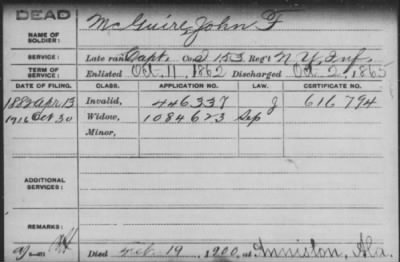 DEAD
NAME OF SOLDIER: McGuire, John F
SERVICE: Late rank Capt. Co. I 153 Reg't N.Y. Inf.
TERM OF SERVICE: Enlisted Oct. 11, 1862 Discharged Oct. 2, 1865
DATE OF FILING. CLASS. APPLICATION NO. LAW. CERTIFICATE NO.
1882 Apr. 13 Invalid, 446337 J 616794
1916 Oct 30 Widow, 1084623 Sep
Minor,
ADDITIONAL SERVICES:
REMARKS:
Died Feb. 19, 1900, at Anniston, Ala.